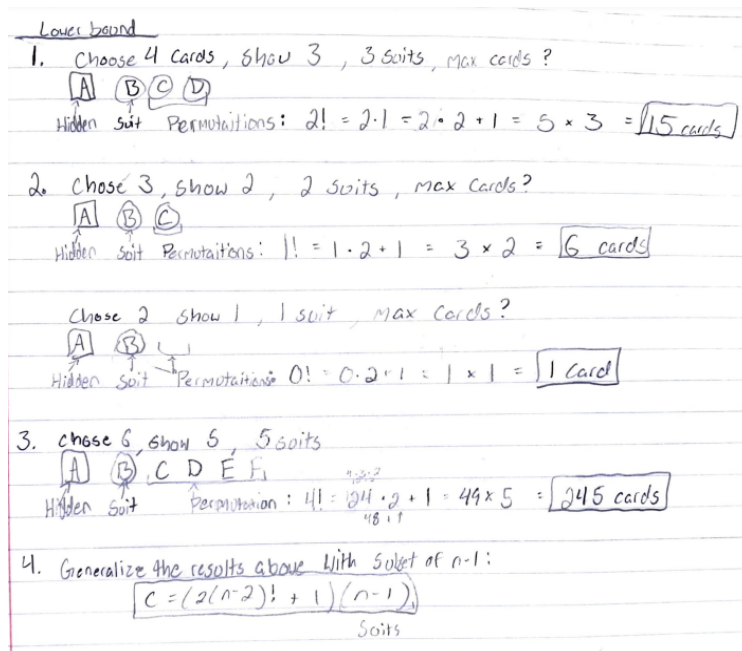 Lower bound
1. Choose 4 Cards, Show 3, 3 Suits, max cards?
A B C D
Hidden Suit Permutaitions: 2! = 2·1 = 2·2+1 = 5 × 3 = 15 cards
2. Chose 3, Show 2, 2 Suits, max Cards?
A B C
Hidden Suit Permutaitions: 1! = 1·2+1 = 3 × 2 = 6 cards
Chose 2 Show 1, 1 suit, max Cards?
A B
Hidden Suit Permutaitions 0! = 0·2+1 = 1 × 1 = 1 Card
3. Chose 6, Show 5, 5 soits
A B C D E F
4·3·2
Hidden Suit Permutation: 4! = 24·2+1 = 49 × 5 = 245 cards
48+1
4. Generalize the results above With Subset of n-1:
C = (2(n-2)! + 1)(n-1)
Suits